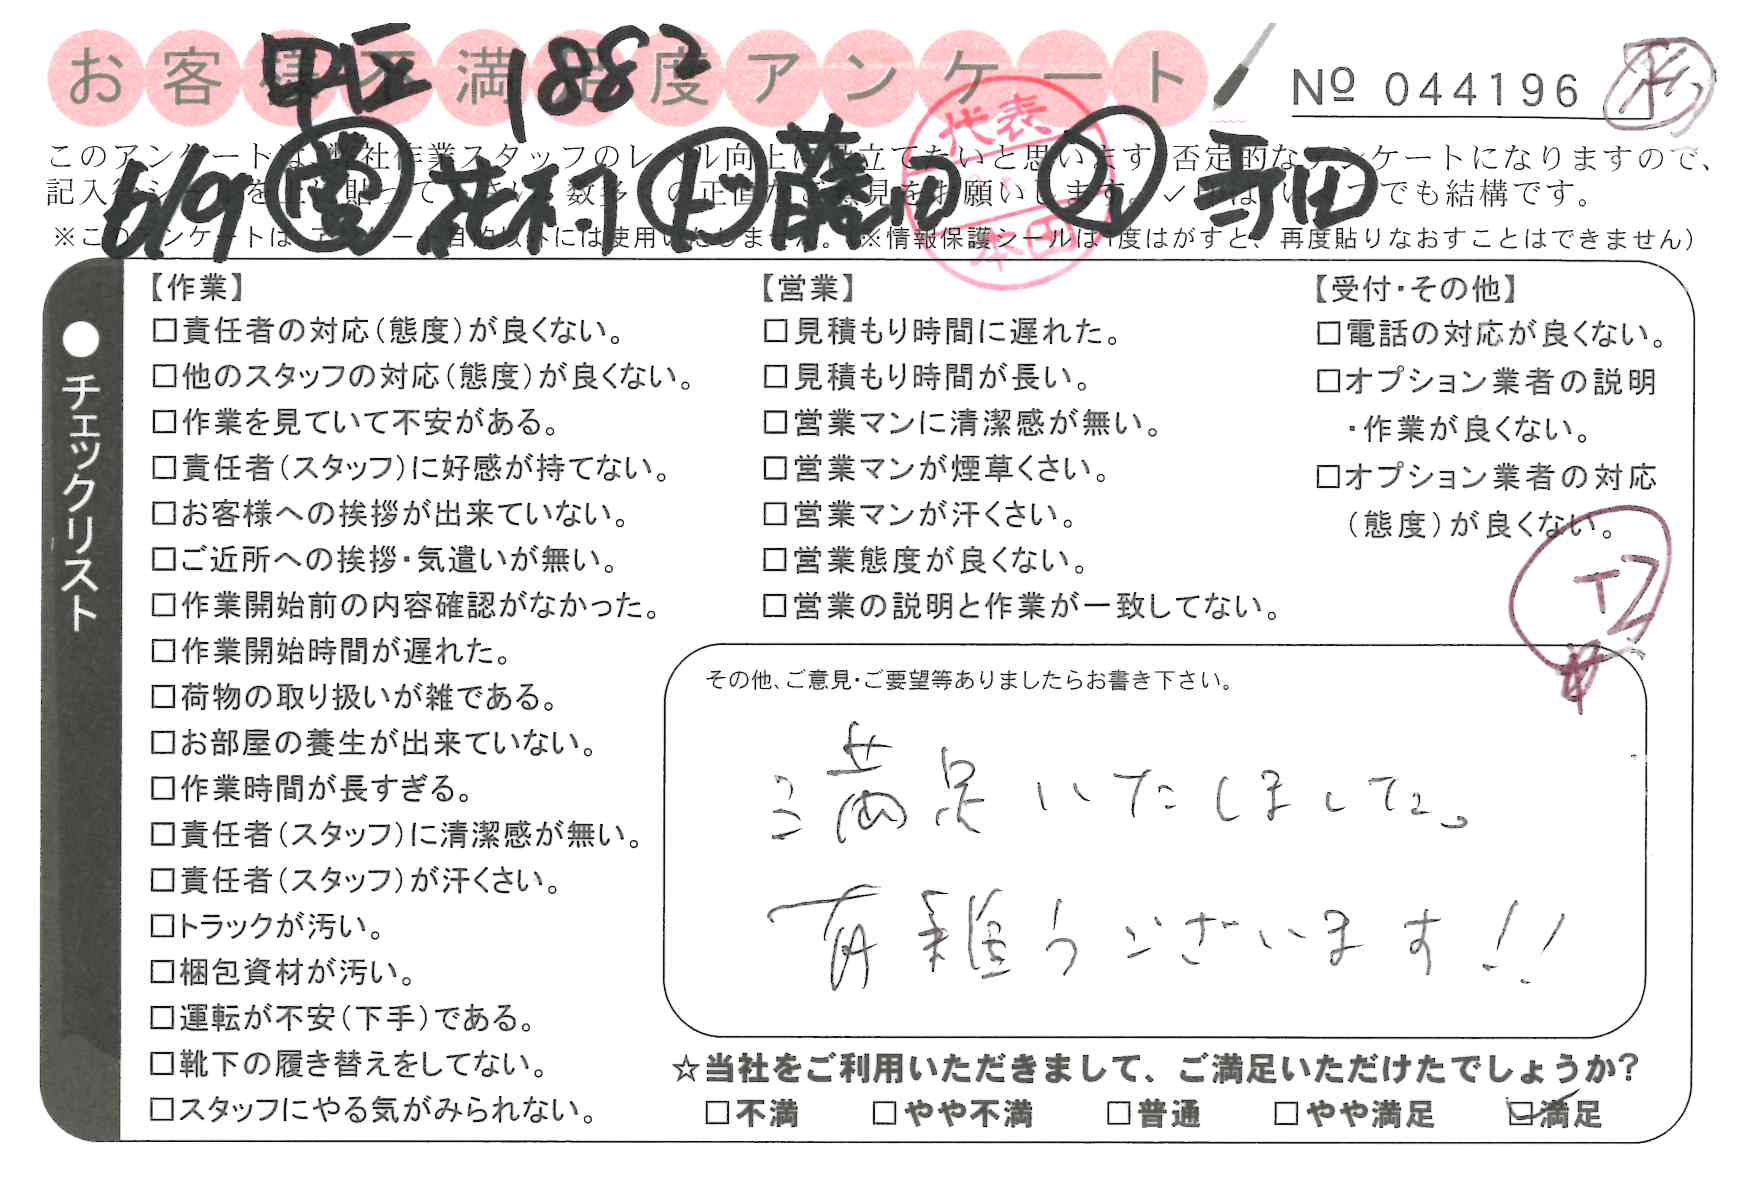 お客様不満足度アンケート
甲区 1883
Nº 044196
このアンケートは、弊社作業スタッフのレベル向上に役立てたいと思います。否定的なアンケートになりますので、
記入後シールを上に貼って下さい。数多くの正直なご意見をお願いします。✓印はいくつでも結構です。
※このアンケートは、アンケート目的以外には使用いたしません。(※情報保護シールは1度はがすと、再度貼りなおすことはできません)
6/9 営 花村 ド 藤田 2 寺田
代表
本田
●チェックリスト
【作業】
□責任者の対応(態度)が良くない。
□他のスタッフの対応(態度)が良くない。
□作業を見ていて不安がある。
□責任者(スタッフ)に好感が持てない。
□お客様への挨拶が出来ていない。
□ご近所への挨拶・気遣いが無い。
□作業開始前の内容確認がなかった。
□作業開始時間が遅れた。
□荷物の取り扱いが雑である。
□お部屋の養生が出来ていない。
□作業時間が長すぎる。
□責任者(スタッフ)に清潔感が無い。
□責任者(スタッフ)が汗くさい。
□トラックが汚い。
□梱包資材が汚い。
□運転が不安(下手)である。
□靴下の履き替えをしてない。
□スタッフにやる気がみられない。
【営業】
□見積もり時間に遅れた。
□見積もり時間が長い。
□営業マンに清潔感が無い。
□営業マンが煙草くさい。
□営業マンが汗くさい。
□営業態度が良くない。
□営業の説明と作業が一致してない。
【受付・その他】
□電話の対応が良くない。
□オプション業者の説明
・作業が良くない。
□オプション業者の対応
(態度)が良くない。
その他、ご意見・ご要望等ありましたらお書き下さい。
満足いたしました。
有難うございます!!
☆当社をご利用いただきまして、ご満足いただけたでしょうか?
□不満 □やや不満 □普通 □やや満足 ☑満足